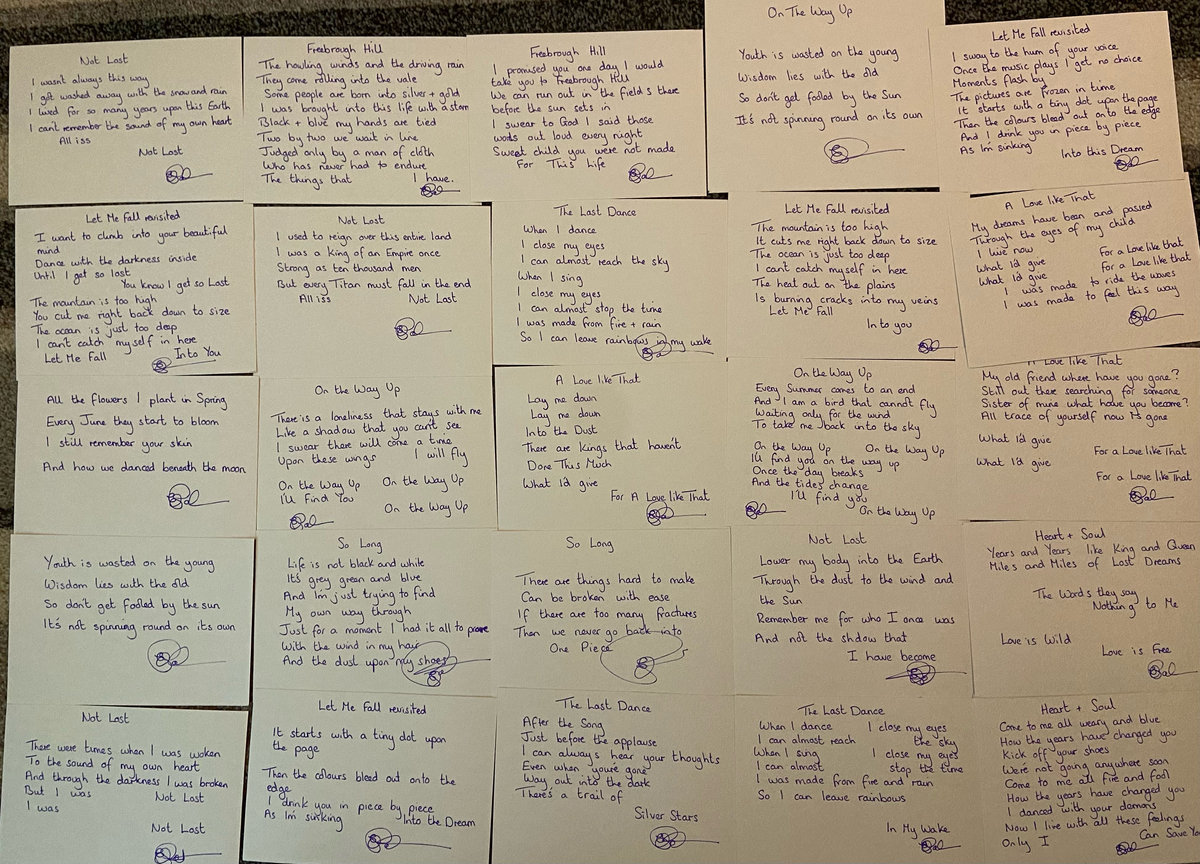 Not Lost
I wasn't always this way
I got washed away with the snow and rain
I lived for so many years upon this Earth
I can't remember the sound of my own heart
All iss
Not Lost
Freebrough Hill
The howling winds and the driving rain
They come rolling into the vale
Some people are born into silver + gold
I was brought into this life with a storm
Black + blue my hands are tied
Two by two we wait in line
Judged only by a man of cloth
Who has never had to endure
The things that I have.
Freebrough Hill
I promised you one day I would
take you to Freebrough Hill
We can run out in the fields there
before the sun sets in
I swear to God I said those
words out loud every night
Sweet child you were not made
For This Life
On The Way Up
Youth is wasted on the young
Wisdom lies with the old
So don't get fooled by the Sun
It's not spinning round on its own
Let Me Fall revisited
I sway to the hum of your voice
Once the music plays I get no choice
Moments flash by
The pictures are frozen in time
It starts with a tiny dot upon the page
Then the colours bleed out onto the edge
And I drink you in piece by piece
As I'm sinking
Into this Dream
Let Me Fall revisited
I want to climb into your beautiful
mind
Dance with the darkness inside
Until I get so lost
You know I get so Lost
The mountain is too high
You cut me right back down to size
The ocean is just too deep
I can't catch myself in here
Let Me Fall Into You
Not Lost
I used to reign over this entire land
I was a King of an Empire once
Strong as ten thousand men
But every Titan must fall in the end
All iss Not Lost
The Last Dance
When I dance
I close my eyes
I can almost reach the sky
When I sing
I close my eyes
I can almost stop the time
I was made from fire + rain
So I can leave rainbows in my wake
Let Me Fall revisited
The mountain is too high
It cuts me right back down to size
The ocean is just too deep
I can't catch myself in here
The heat out on the plains
Is burning cracks into my veins
Let Me Fall
In to you
A Love like That
My dreams have been and passed
Through the eyes of my child
I live now For a Love like that
What I'd give For a Love like that
What I'd give
I was made to ride the waves
I was made to feel this way
All the flowers I plant in Spring
Every June they start to bloom
I still remember your skin
And how we danced beneath the moon
On the Way Up
There is a loneliness that stays with me
Like a shadow that you can't see
I swear there will come a time
Upon these wings I will fly
On the Way Up On the Way Up
I'll Find You
On the Way Up
A Love like That
Lay me down
Lay me down
Into the Dust
There are Kings that haven't
Done This Much
What I'd give
For A Love like That
On the Way Up
Every Summer comes to an end
And I am a bird that cannot fly
Waiting only for the wind
To take me back into the sky
On the Way Up On the Way Up
I'll find you on the way up
Once the day breaks
And the tides change
I'll find you
On the Way Up
A Love like That
My old friend where have you gone?
Still out there searching for someone
Sister of mine what have you become?
All trace of yourself now is gone
What I'd give
For a Love like That
What I'd give
For a Love like That
Youth is wasted on the young
Wisdom lies with the old
So don't get fooled by the sun
It's not spinning round on its own
So Long
Life is not black and white
It's grey green and blue
And I'm just trying to find
My own way through
Just for a moment I had it all to prove
With the wind in my hair
And the dust upon my shoes
So Long
There are things hard to make
Can be broken with ease
If there are too many fractures
Then we never go back into
One Piece
Not Lost
Lower my body into the Earth
Through the dust to the wind and
the Sun
Remember me for who I once was
And not the shdow that
I have become
Heart + Soul
Years and Years like King and Queen
Miles and Miles of Lost Dreams
The Words they say
Nothing to Me
Love is Wild
Love is Free
Not Lost
There were times when I was woken
To the sound of my own heart
And through the darkness I was broken
But I was Not Lost
I was
Not Lost
Let Me Fall revisited
It starts with a tiny dot upon
the page
Then the colours bleed out onto the
edge
I drink you in piece by piece
As I'm sinking Into the Dream
The Last Dance
After the Song
Just before the applause
I can always hear your thoughts
Even when you're gone
Way out into the dark
There's a trail of
Silver Stars
The Last Dance
When I dance I close my eyes
I can almost reach the sky
When I sing I close my eyes
I can almost stop the time
I was made from fire and rain
So I can leave rainbows
In My Wake
Heart + Soul
Come to me all weary and blue
How the years have changed you
Kick off your shoes
We're not going anywhere soon
Come to me all fire and fool
How the years have changed you
I danced with your demons
Now I live with all these feelings
Only I Can Save You